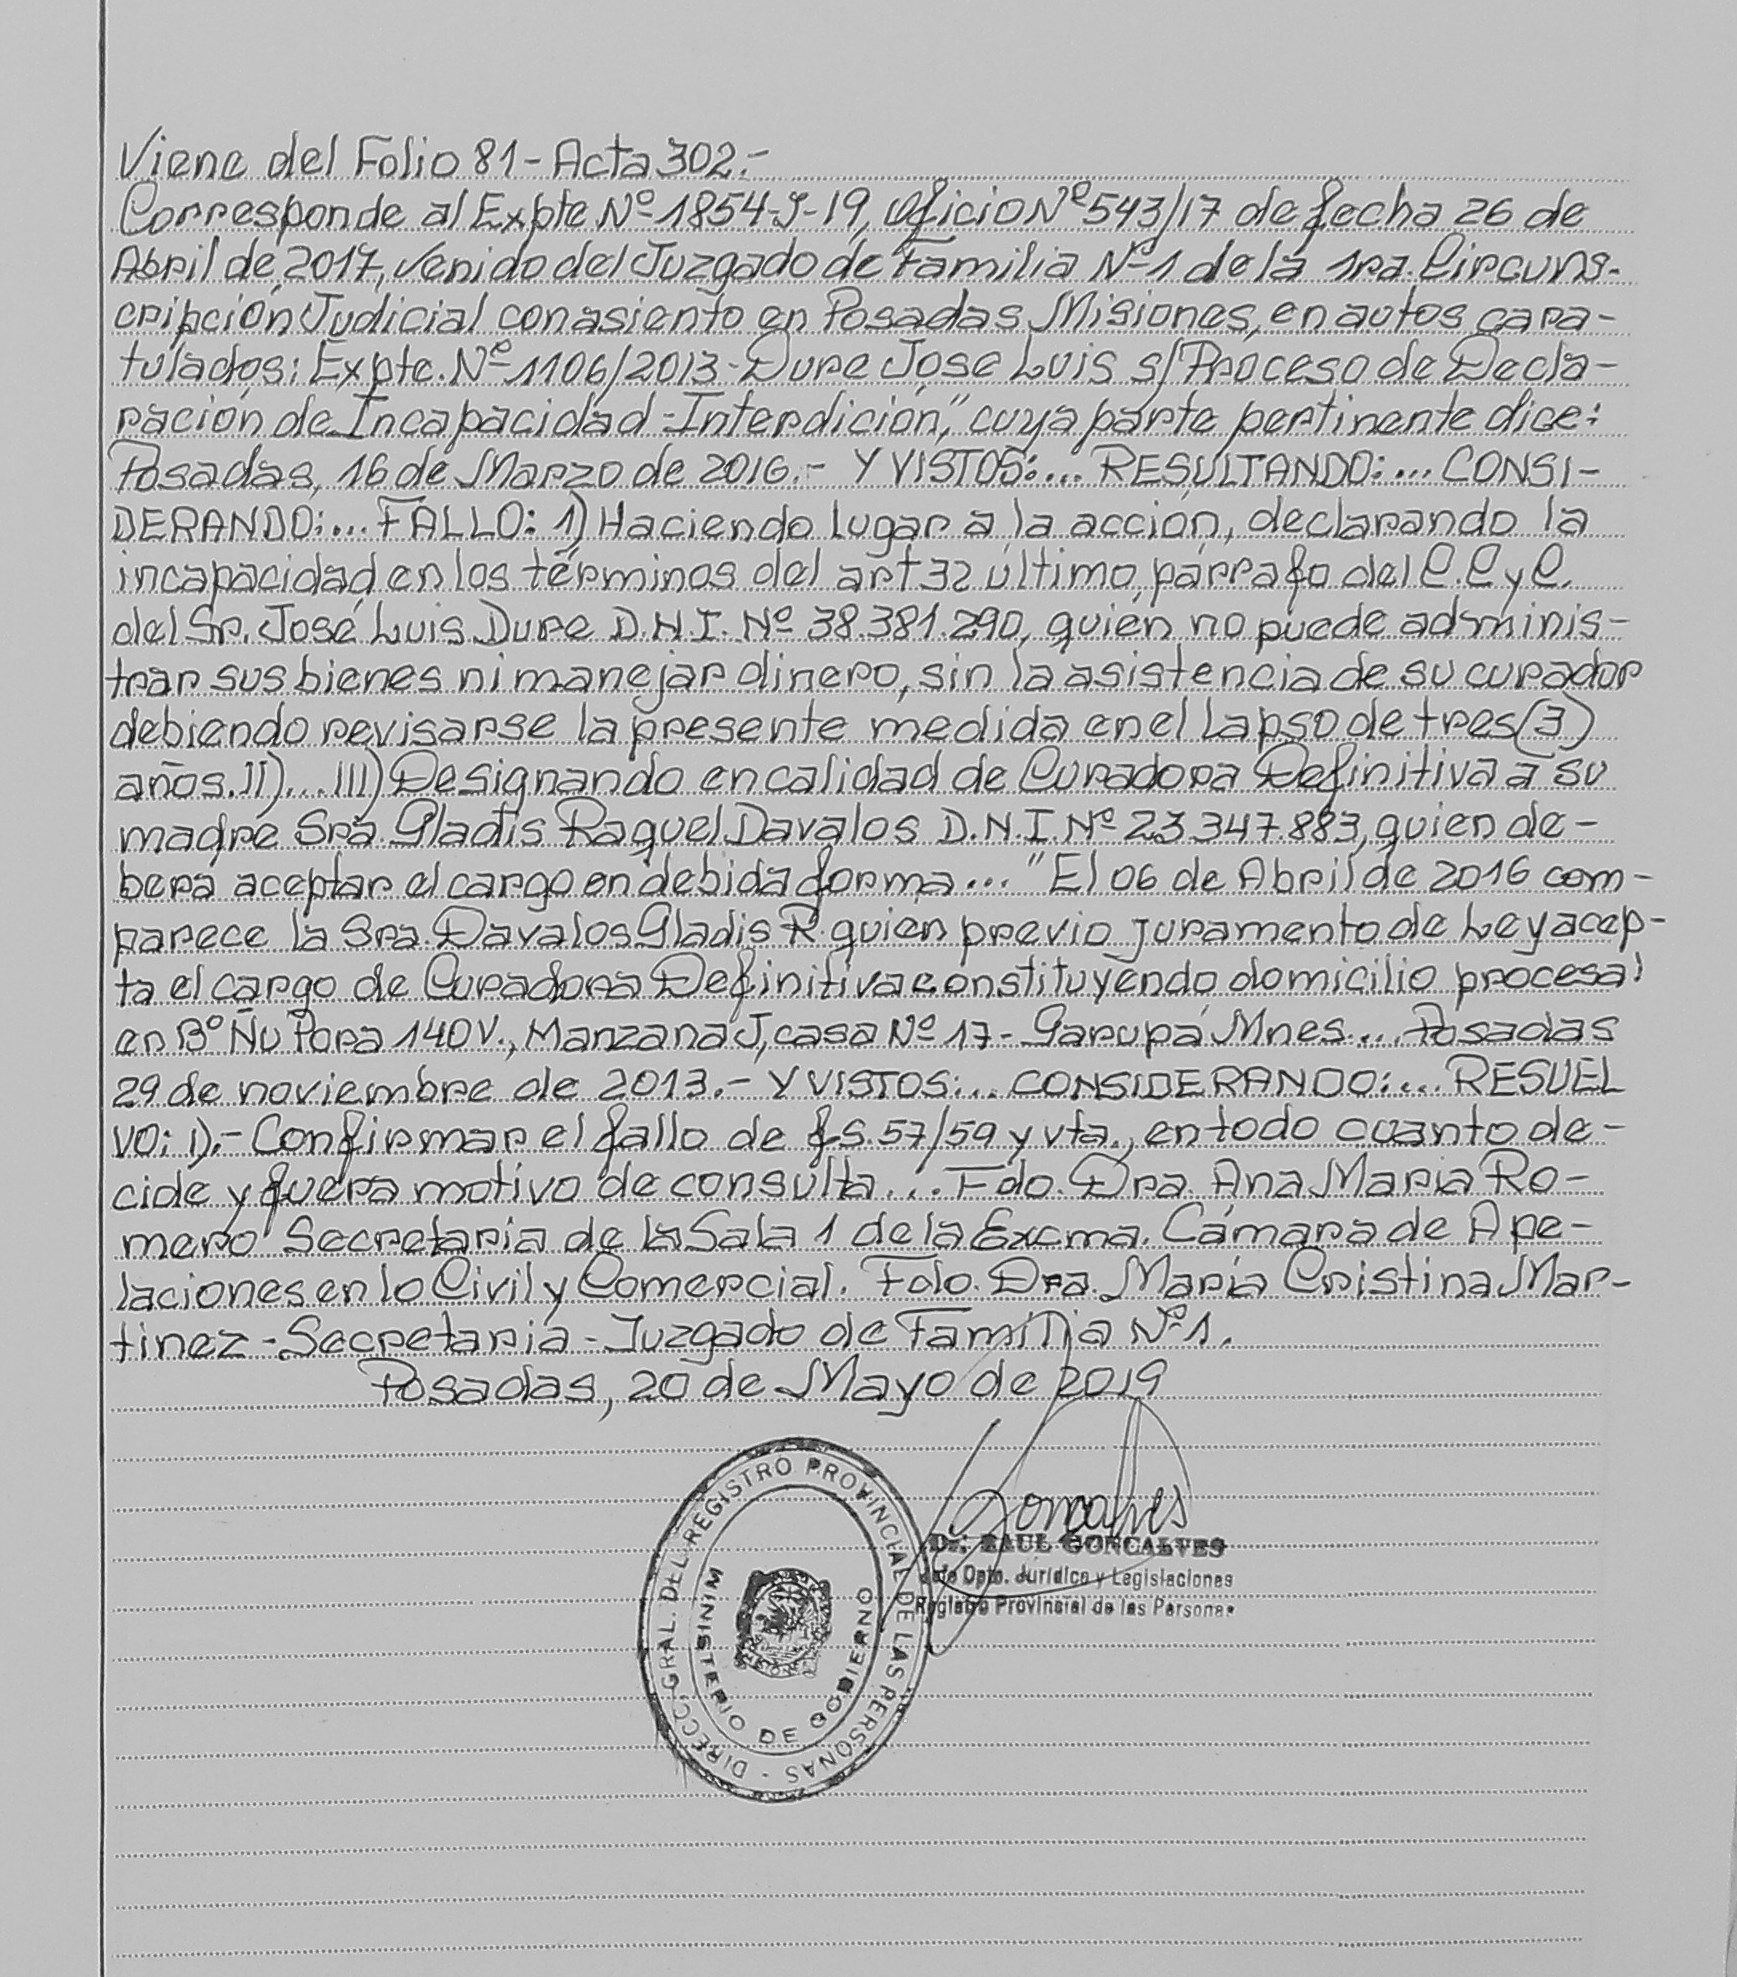 Viene del Folio 81 - Acta 302.-
Corresponde al Expte Nº 1854-J-19, Oficio Nº 543/17 de fecha 26 de
Abril de 2017, venido del Juzgado de Familia Nº 1 de la 1ra. Circuns-
cripción Judicial con asiento en Posadas Misiones, en autos cara-
tulados: Expte. Nº 1106/2013 - Dure José Luis s/ Proceso de Decla-
ración de Incapacidad - Interdición," cuya parte pertinente dice:
Posadas, 16 de Marzo de 2016.- Y VISTOS:... RESULTANDO:... CONSI-
DERANDO:... FALLO: 1) Haciendo lugar a la acción, declarando la
incapacidad en los términos del art 32 último párrafo del C.C y C.
del Sr. José Luis Dure D.N.I. Nº 38.381.290, quién no puede adminis-
trar sus bienes ni manejar dinero, sin la asistencia de su curador
debiendo revisarse la presente medida en el lapso de tres (3)
años. II)... III) Designando en calidad de Curadora Definitiva a su
madre Sra. Gladis Raquel Davalos D.N.I. Nº 23.347.883, quien de-
berá aceptar el cargo en debida forma..." El 06 de Abril de 2016 com-
parece la Sra. Davalos Gladis R. quien previo juramento de Ley acep-
ta el cargo de Curadora Definitiva constituyendo domicilio procesal
en Bº Ñu Pora 140 V., Manzana J, casa Nº 17 - Garupá Mnes... Posadas
29 de noviembre de 2013.- Y VISTOS:... CONSIDERANDO:... RESUEL
VO: 1).- Confirmar el fallo de fs. 57/59 y vta., en todo cuanto de-
cide y fuera motivo de consulta... Fdo. Dra. Ana Maria Ro-
mero Secretaria de la Sala 1 de la Excma. Cámara de Ape-
laciones en lo Civil y Comercial. Fdo. Dra. María Cristina Mar-
tinez - Secretaria - Juzgado de Familia Nº 1.
Posadas, 20 de Mayo de 2019
DIRECC. GRAL. DEL REGISTRO PROVINCIAL DE LAS PERSONAS -
MINISTERIO DE GOBIERNO
Goncalves
Dr. RAUL GONCALVES
Jefe Dpto. Jurídico y Legislaciones
Registro Provincial de las Personas